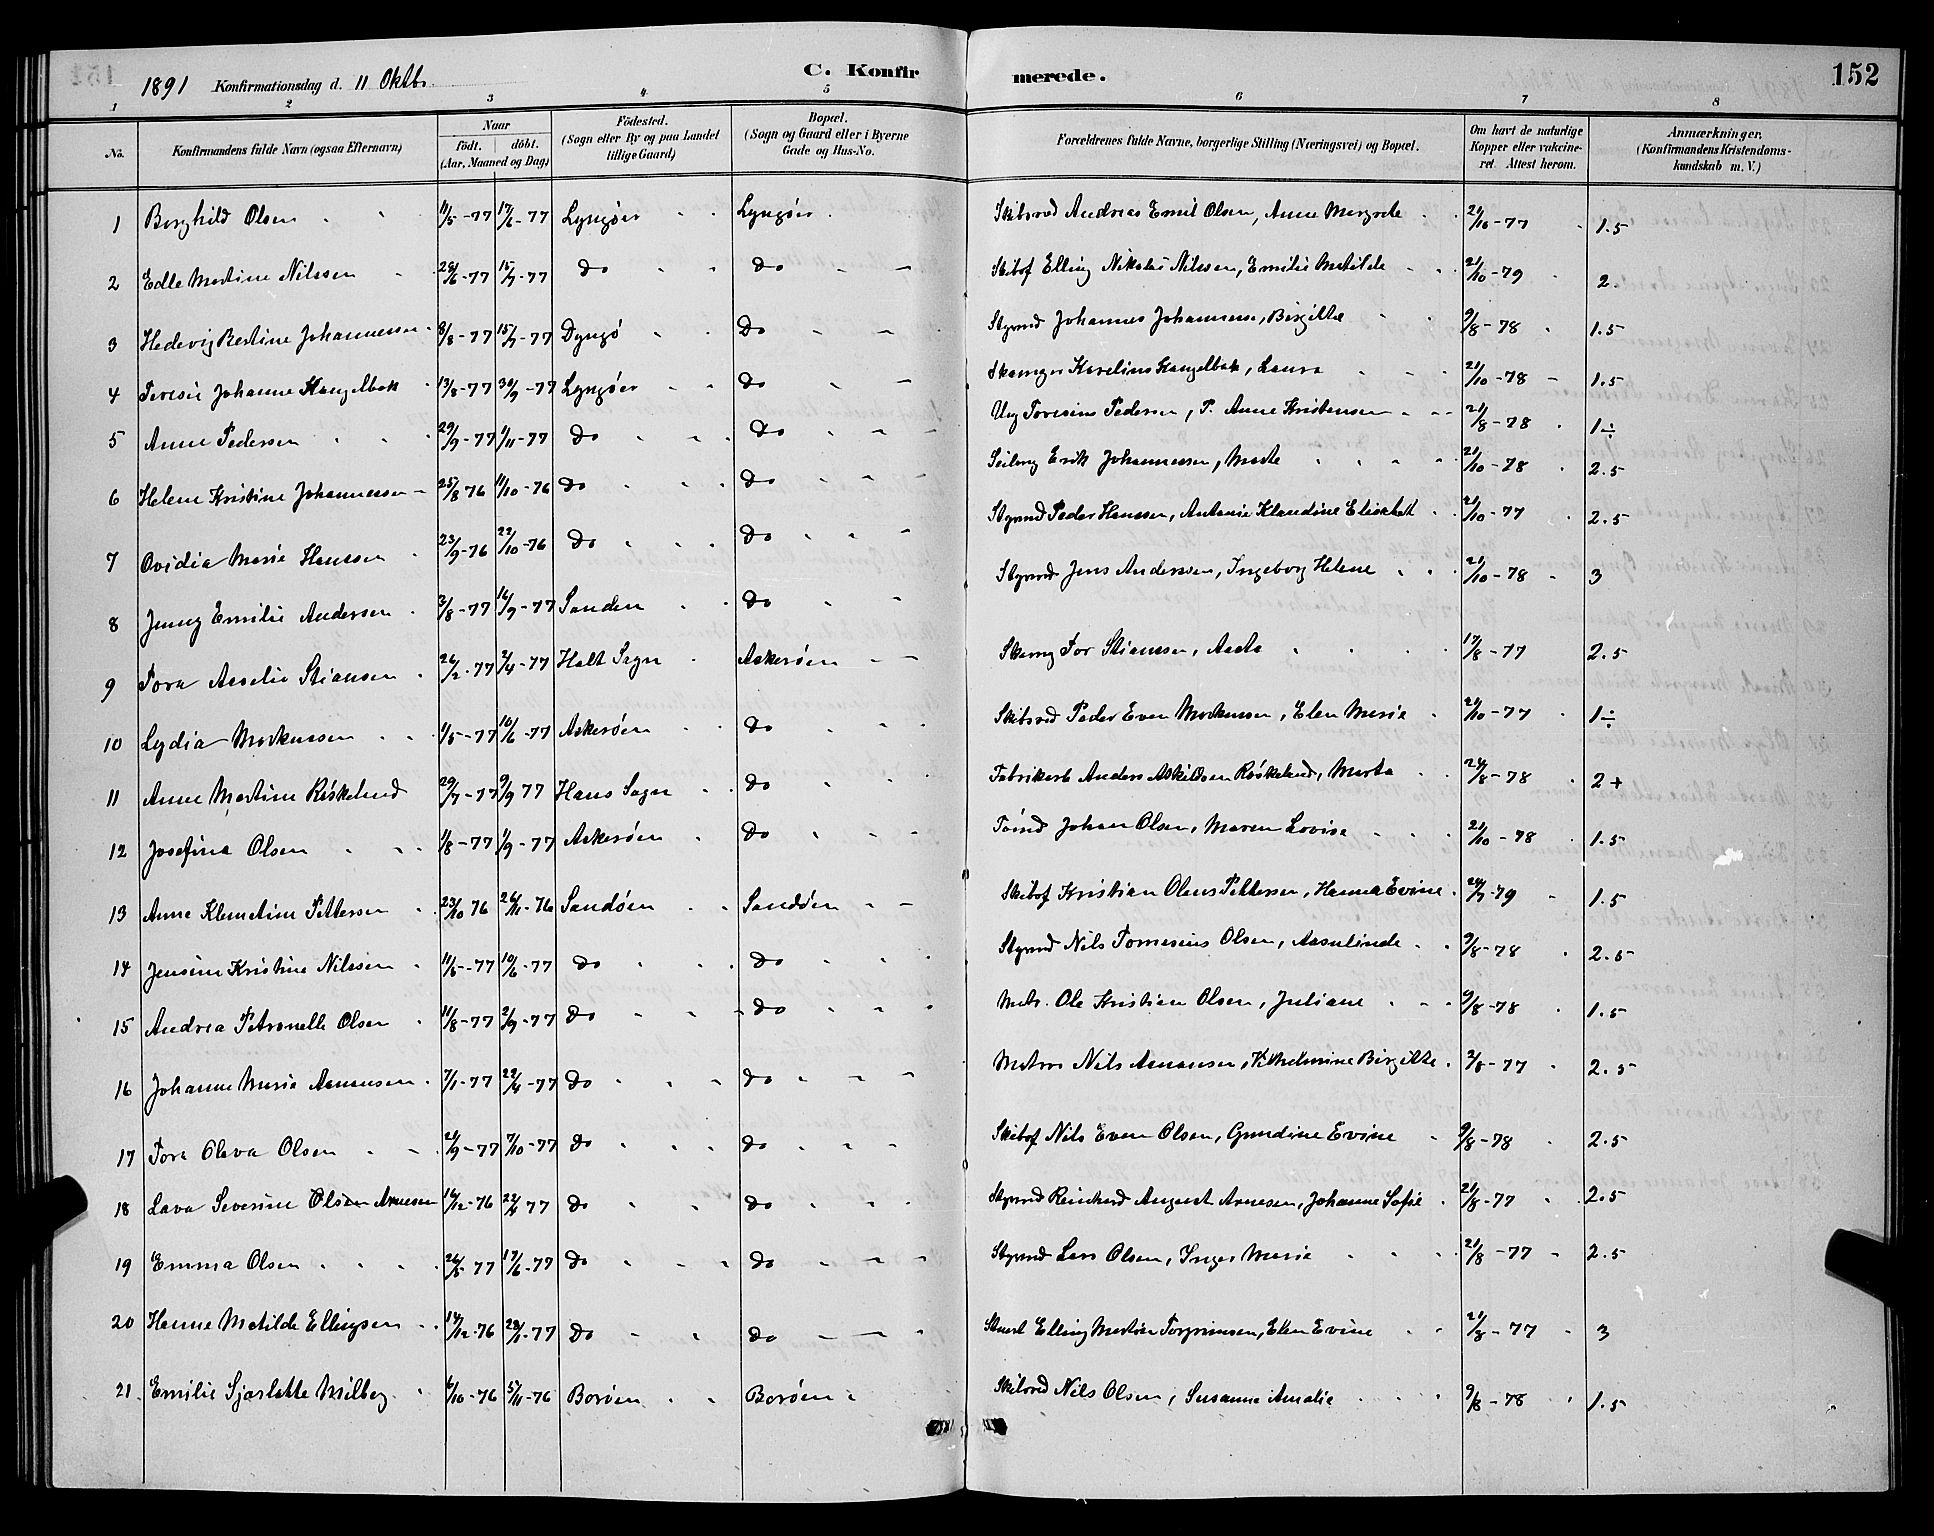 1891 Konfirmationsdag d. 11 Oktb. C. Konfirmerede. 152
1 2 3 4 5 6 7 8
No. Konfirmandens fulde Navn (ogsaa Efternavn) Naar født. døbt. (Aar, Maaned og Dag) Fødested. (Sogn eller By og paa Landet tillige Gaard) Bopæl. (Sogn og Gaard eller i Byerne Gade og Hus-No. Forældrenes fulde Navne, borgerlige Stilling (Næringsvei) og Bopæl. Om havt de naturlige Kopper eller vakcineret. Attest herom. Anmærkninger, (Konfirmandens Kristendomskundskab m. V.)
1 Borghild Olsen 11/5-77 17/6-77 Lyngøer Lyngøer Skibsred Andreas Emil Olsen, Anne Margrete 21/10-77 1.5
2 Edle Martine Nilssen 26/6-77 15/7-77 do do Skibsf Elling Nikolai Nilssen, Emilie Matilde 21/10-79 2
3 Hedevig Bertine Johannessen 8/8-77 15/9-77 Dyngø do Styrmd Johannes Johannesen, Birgitte 9/8-78 1.5
4 Teresie Johanne Stangelbak 13/8-77 30/9-77 Lyngøer do Skomager Karelius Stangelbak, Laura 21/10-78 1.5
5 Anne Pedersen 29/9-77 1/11-77 do do Ung Toresius Pedersen, P. Anne Kristensen 21/8-78 1÷
6 Helene Kristine Johannessen 25/8 76 11/10-76 do do Seilmg Erik Johannessen, Marte 21/10-78 2.5
7 Ovidia Marie Hanssen 23/9-76 22/10-76 do do Styrmd Peder Hanssen, Antonie Klaudine Elisabet 21/10-77 2.5
8 Jenny Emilie Andersen 2/8-77 16/9-77 Sanden do Styrmd Jens Andersen, Ingeborg Helene 21/10-78 3
9 Tora Aselie Stiansen 26/2-77 2/4-77 Holt Sogn Askerøen Skomg Tor Stianssen, Aasta 17/8-77 2.5
10 Lydia Markussen 1/5-77 10/6-77 Askerøen do Skibsred Peder Even Markussen, Elen Marie 21/10-77 1÷
11 Anne Martine Røskelund 29/7-77 9/9 77 Hans Sogn do Fabrikarb Anders Askildsen Røskelund, Marta 24/8-78 2+
12 Josefine Olsen 1/8-77 1/9-77 Askerøen do Tømd Johan Olsen, Maren Lovise 21/10-78 1.5
13 Anne Klemetine Pettersen 23/10 76 26/11-76 Sandøen Sandøen Skibsf Kristian Olens Pettersen, Hanna Evine 24/7-79 1.5
14 Jensine Kristine Nilssen 11/5-77 10/6-77 do do Styrmd Nils Tomesius Olsen, Aasulinde 9/8-78 2.5
15 Andrea Petronelle Olsen 11/8-77 2/9-77 do do Matr. Ole Kristian Olsen, Juliane 9/8-78 1.5
16 Johanne Marie Asmansen 7/1-77 22/4-77 do do Matros Nils Asmansen, Vilhelmine Birgitte 2/8-77 2.5
17 Tora Olava Olsen 21/9-77 7/10-77 do do Skibsf Nils Even Olsen, Gundine Evine 9/8-78 2.5
18 Lava Severine Olsen Arnesen 16/12-76 22/4 77 do do Styrmd Reinhard August Arnesen, Johanne Sofie 21/8-77 2.5
19 Emma Olsen 26/5 77 17/6-77 do do Styrmd Lars Olsen, Inger Marie 21/8-77 2.5
20 Hanne Matilde Ellingsen 17/12-76 do do Elling Martin Torgrimsen, Elen Evine 21/8-77 3
21 Emilie Sjarlotte Milberg 6/10-76 5/11-76 Borøen Borøen Skibsred Nils Olsen, Susanne Amalie 9/8-78 1.5